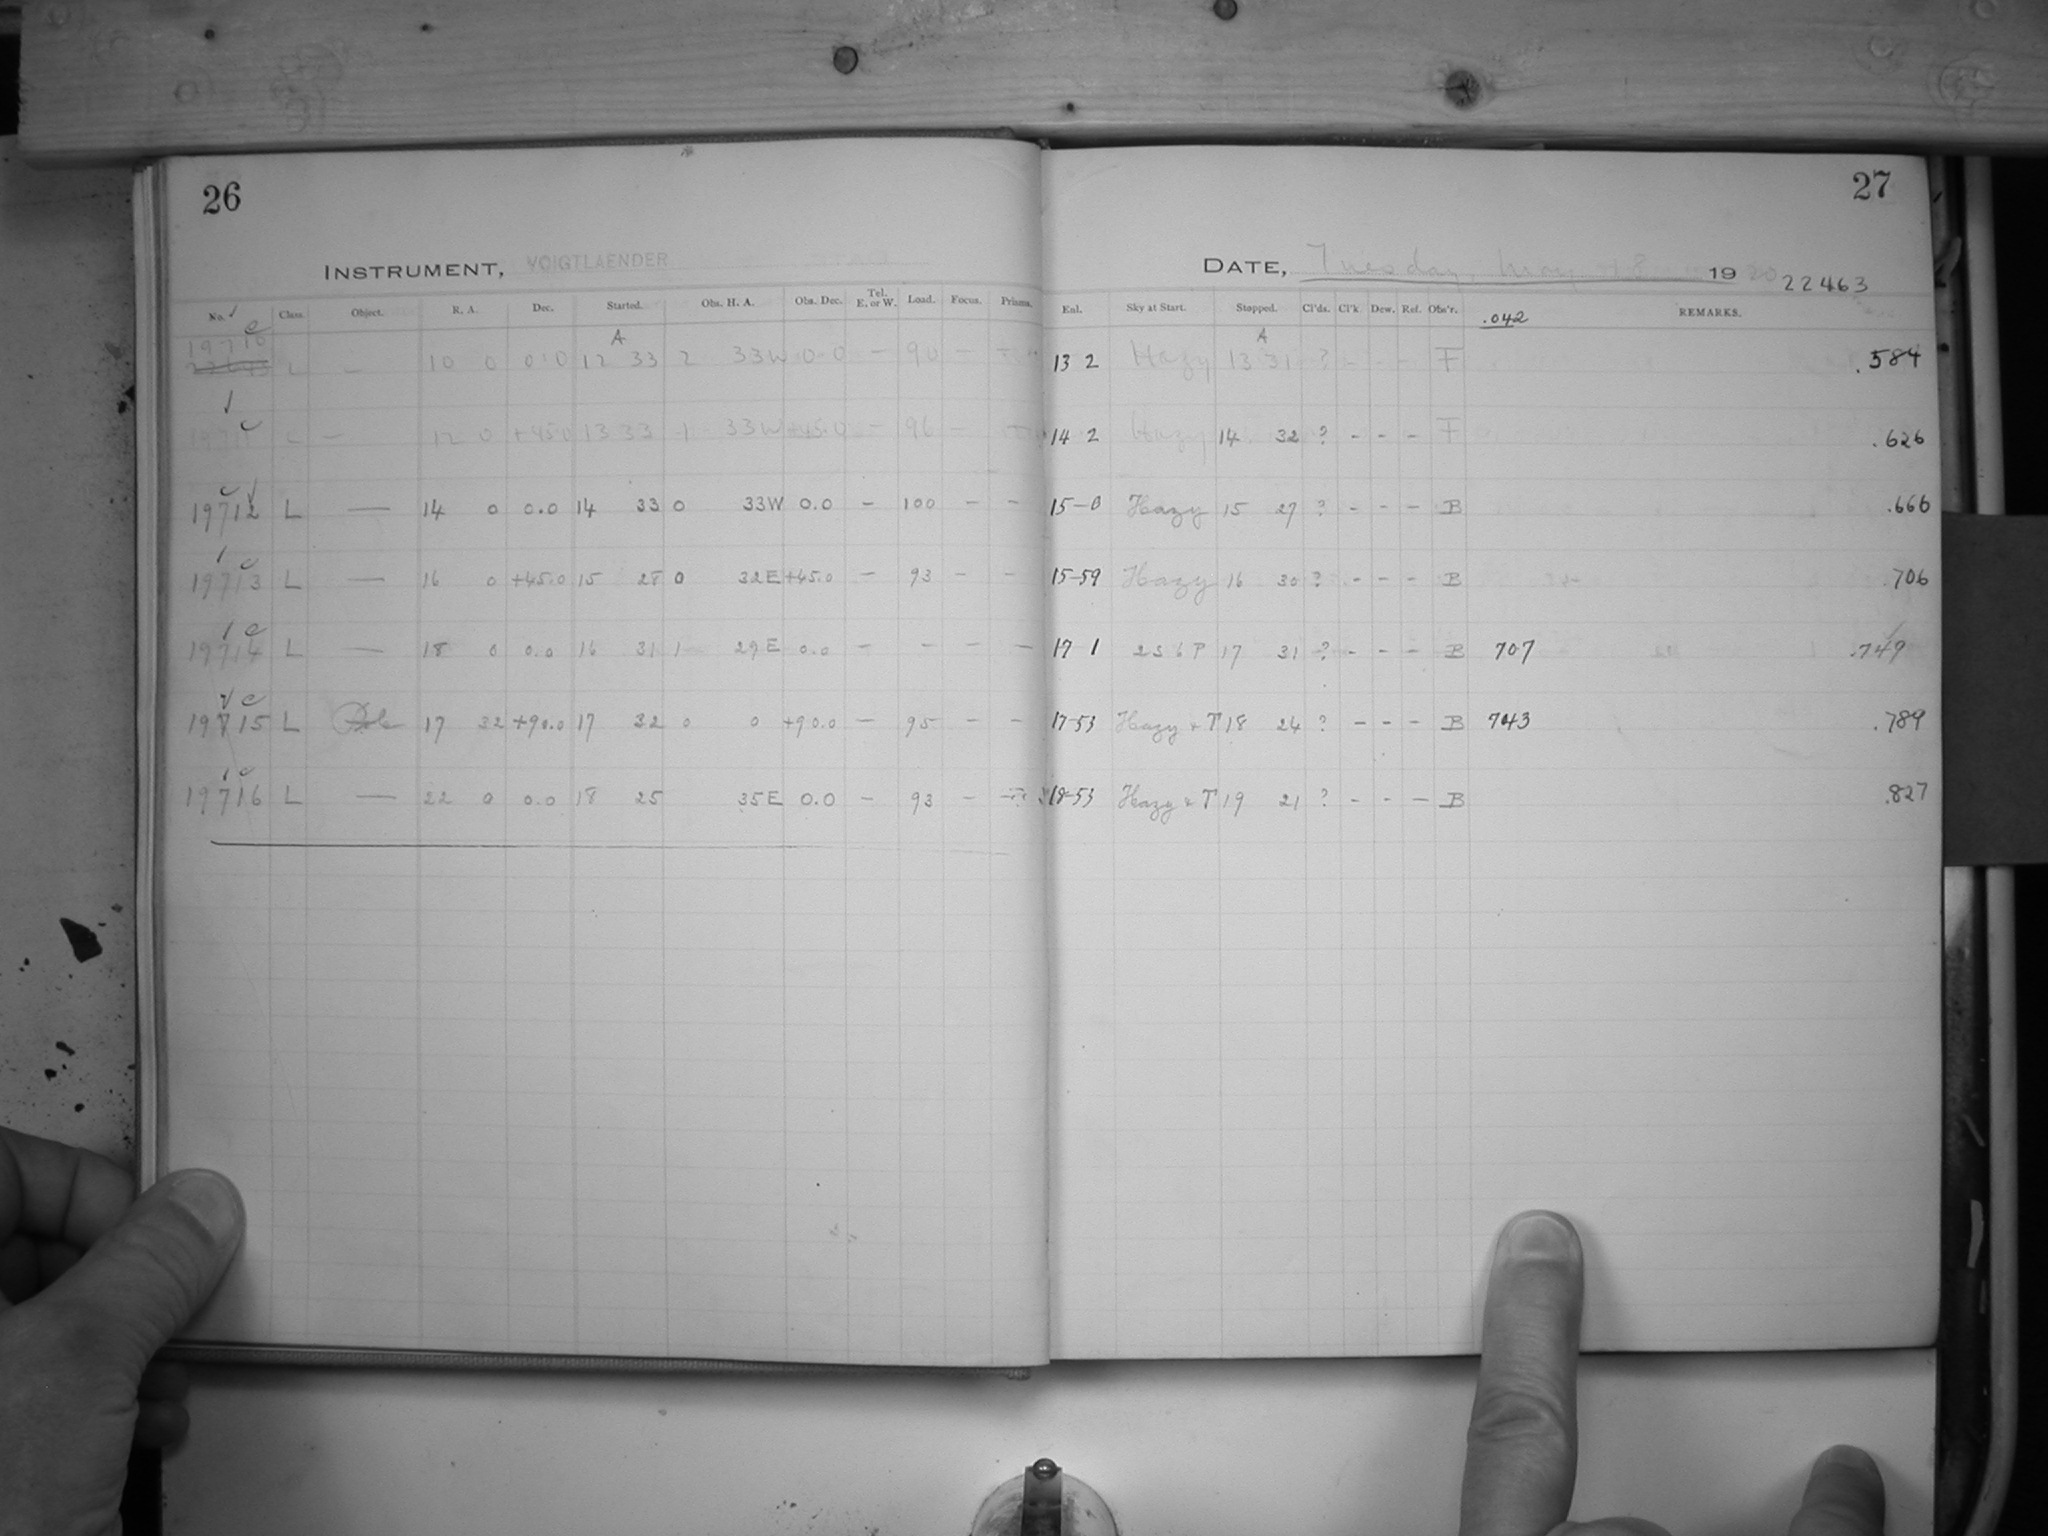 26
INSTRUMENT, VOIGTLAENDER
No. Class. Object. R. A. Dec. Started. Obs. H. A. Obs. Dec. Tel. E. or W. Load. Focus. Prisms.
19710 L — 10 0 0.0 A 12 33 2 33W 0.0 — 90 —
19711 L — 12 0 +45.0 13 33 1 33W +45.0 — 96 —
19712 L — 14 0 0.0 14 33 0 33W 0.0 — 100 — —
19713 L — 16 0 +45.0 15 28 0 32E +45.0 — 93 — —
19714 L — 18 0 0.0 16 31 1 29E 0.0 — — — —
19715 L Pole 17 32 +90.0 17 32 0 0 +90.0 — 95 — —
19716 L — 22 0 0.0 18 25 35E 0.0 — 93 —
27
DATE, Tuesday, 1920
22463
Enl. Sky at Start. Stopped. Cl'ds. Cl'k Dew. Ref. Obs'r. .042 REMARKS.
13 2 Hazy A 13 31 ? - - - F .584
14 2 Hazy 14 32 ? - - - F .626
15-0 Hazy 15 27 ? - - - B .666
15-59 Hazy 16 30 ? - - - B .706
17 1 17 31 ? - - - B 707 .749
17-53 Hazy + T 18 24 ? - - - B 743 .789
18-53 Hazy + T 19 21 ? - - - B .827